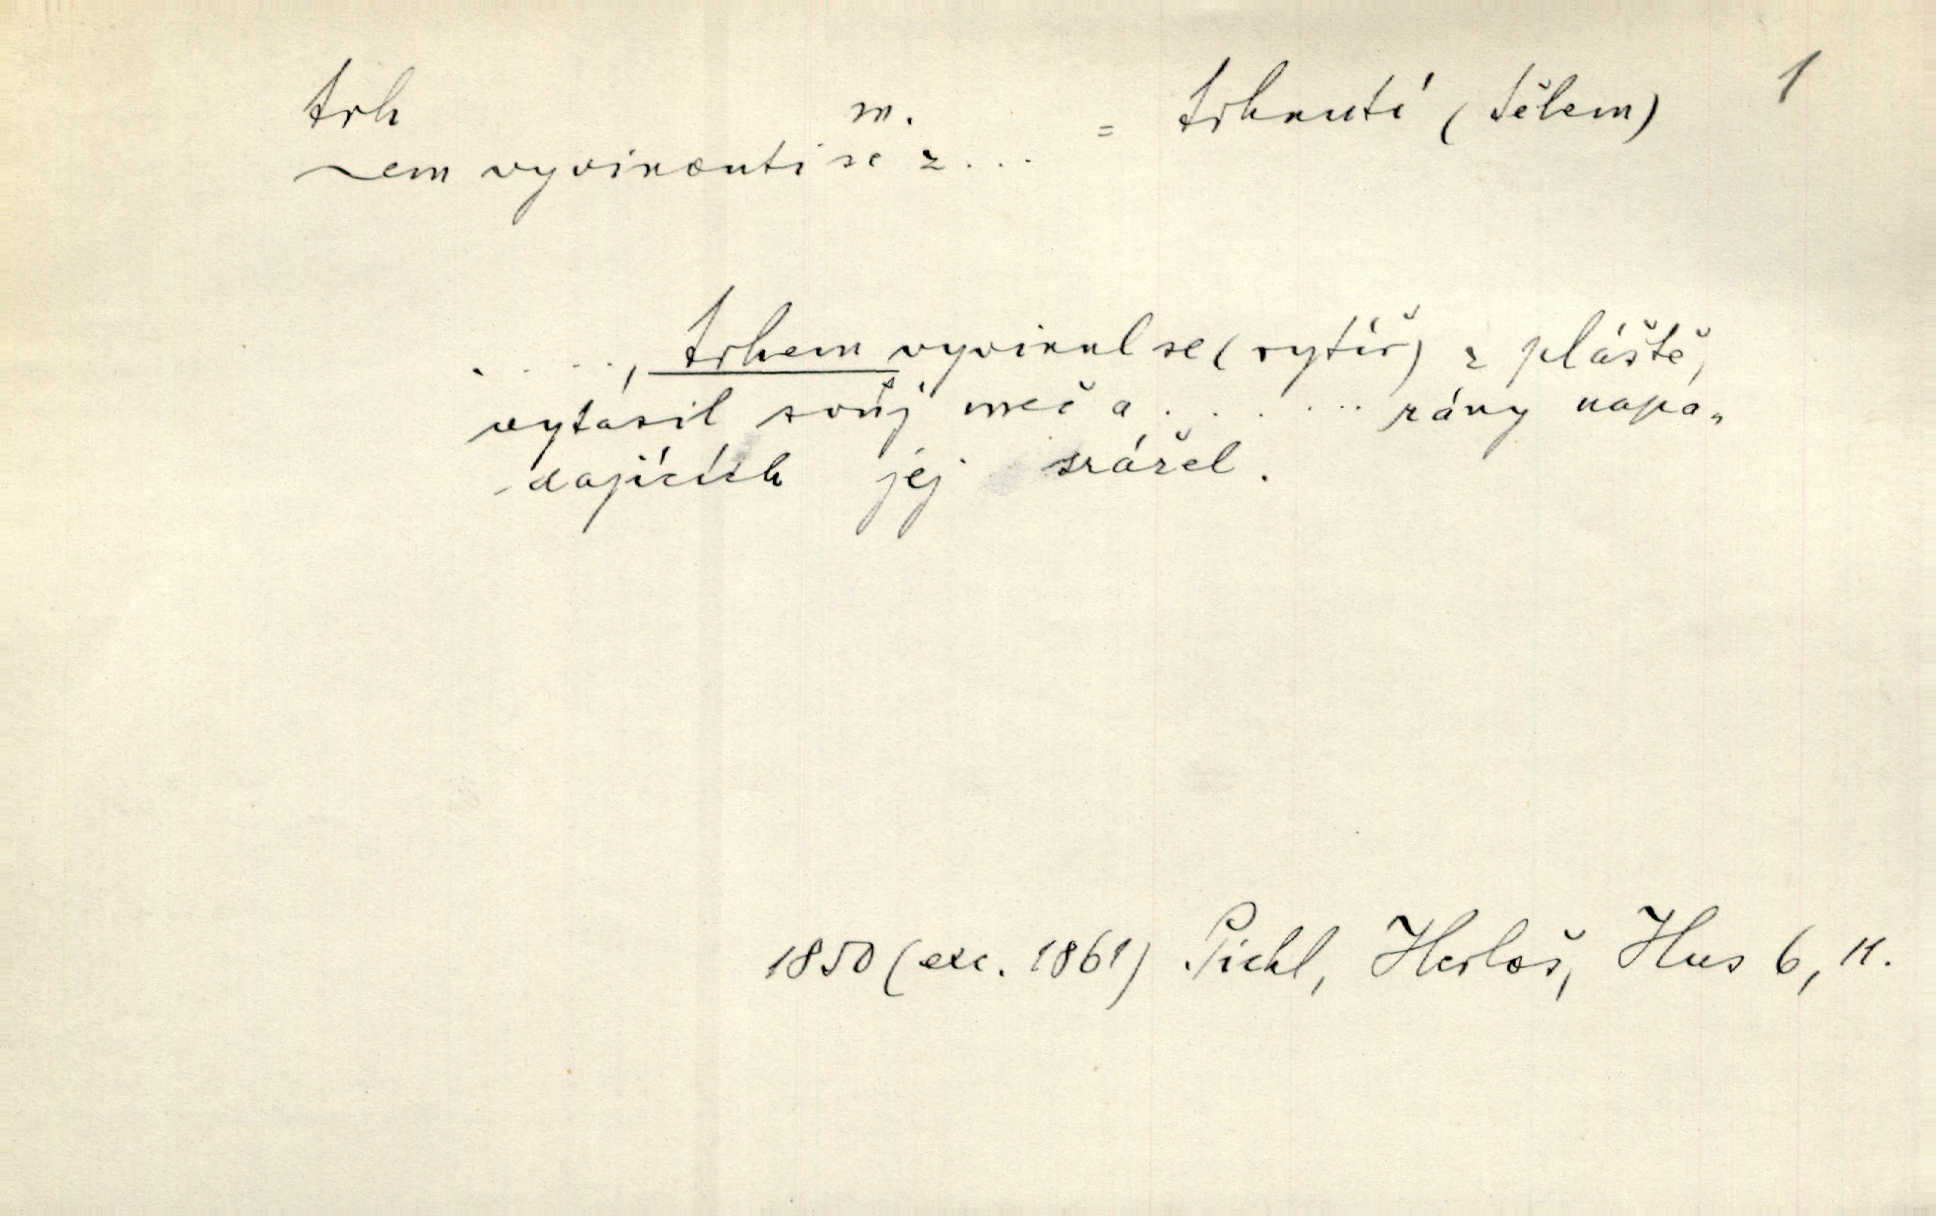 trh m. = trhnutí (tělem) 1
~em vyvinouti se z...
. . . . . , trhem vyvinul se (rytíř) z pláště,
vytasil svůj meč a . . . . . . . rány napa-
-dajících jej srážel.
1850 (exc. 1861) Pichl, Herloš, Hus 6, 11.